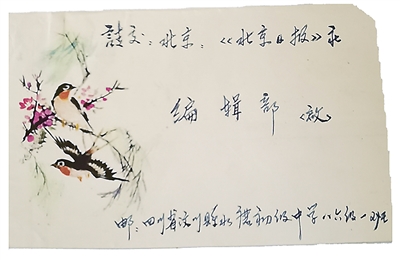 请交:北京:《《北京日报》》社
编辑部(收)
邮:四川省汶川县水磨初级中学八六级一班